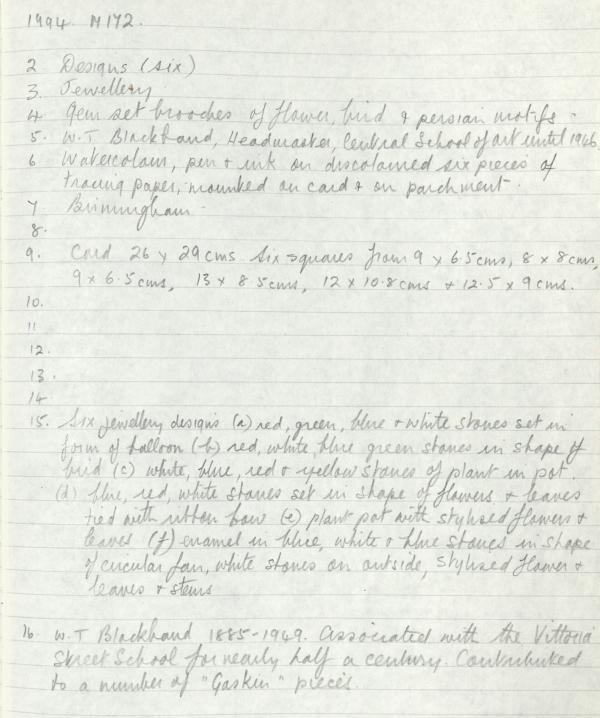 1994. M172.
2 Designs (six)
3. Jewellery
4 Gem set brooches of flower, bird & persian motifs.
5. W.T Blackband, Headmaster, Central School of art until 1946.
6 Watercolour, pen & ink on discoloured six pieces of
tracing paper, mounted on card & on parchment.
7 Birmingham.
8.
9. Card 26 x 29 cms six squares from 9 x 6.5cms, 8 x 8cms,
9 x 6.5cms, 13 x 8 5cms, 12 x 10.8cms & 12.5 x 9cms.
10.
11
12.
13.
14
15. Six jewellery designs (a) red, green, blue & white stones set in
form of balloon (b) red, white, blue green stones in shape of
bird (c) white, blue, red & yellow stones of plant in pot.
(d) blue, red, white stones set in shape of flowers & leaves
tied with ribbon bow (e) plant pot with stylised flowers &
leaves (f) enamel in blue, white & blue stones in shape
of circular fan, white stones on outside, stylised flower &
leaves & stems
16. W.T Blackband 1885-1949. Associated with the Vittoria
Street School for nearly half a century. Contributed
to a number of "Gaskin" pieces.